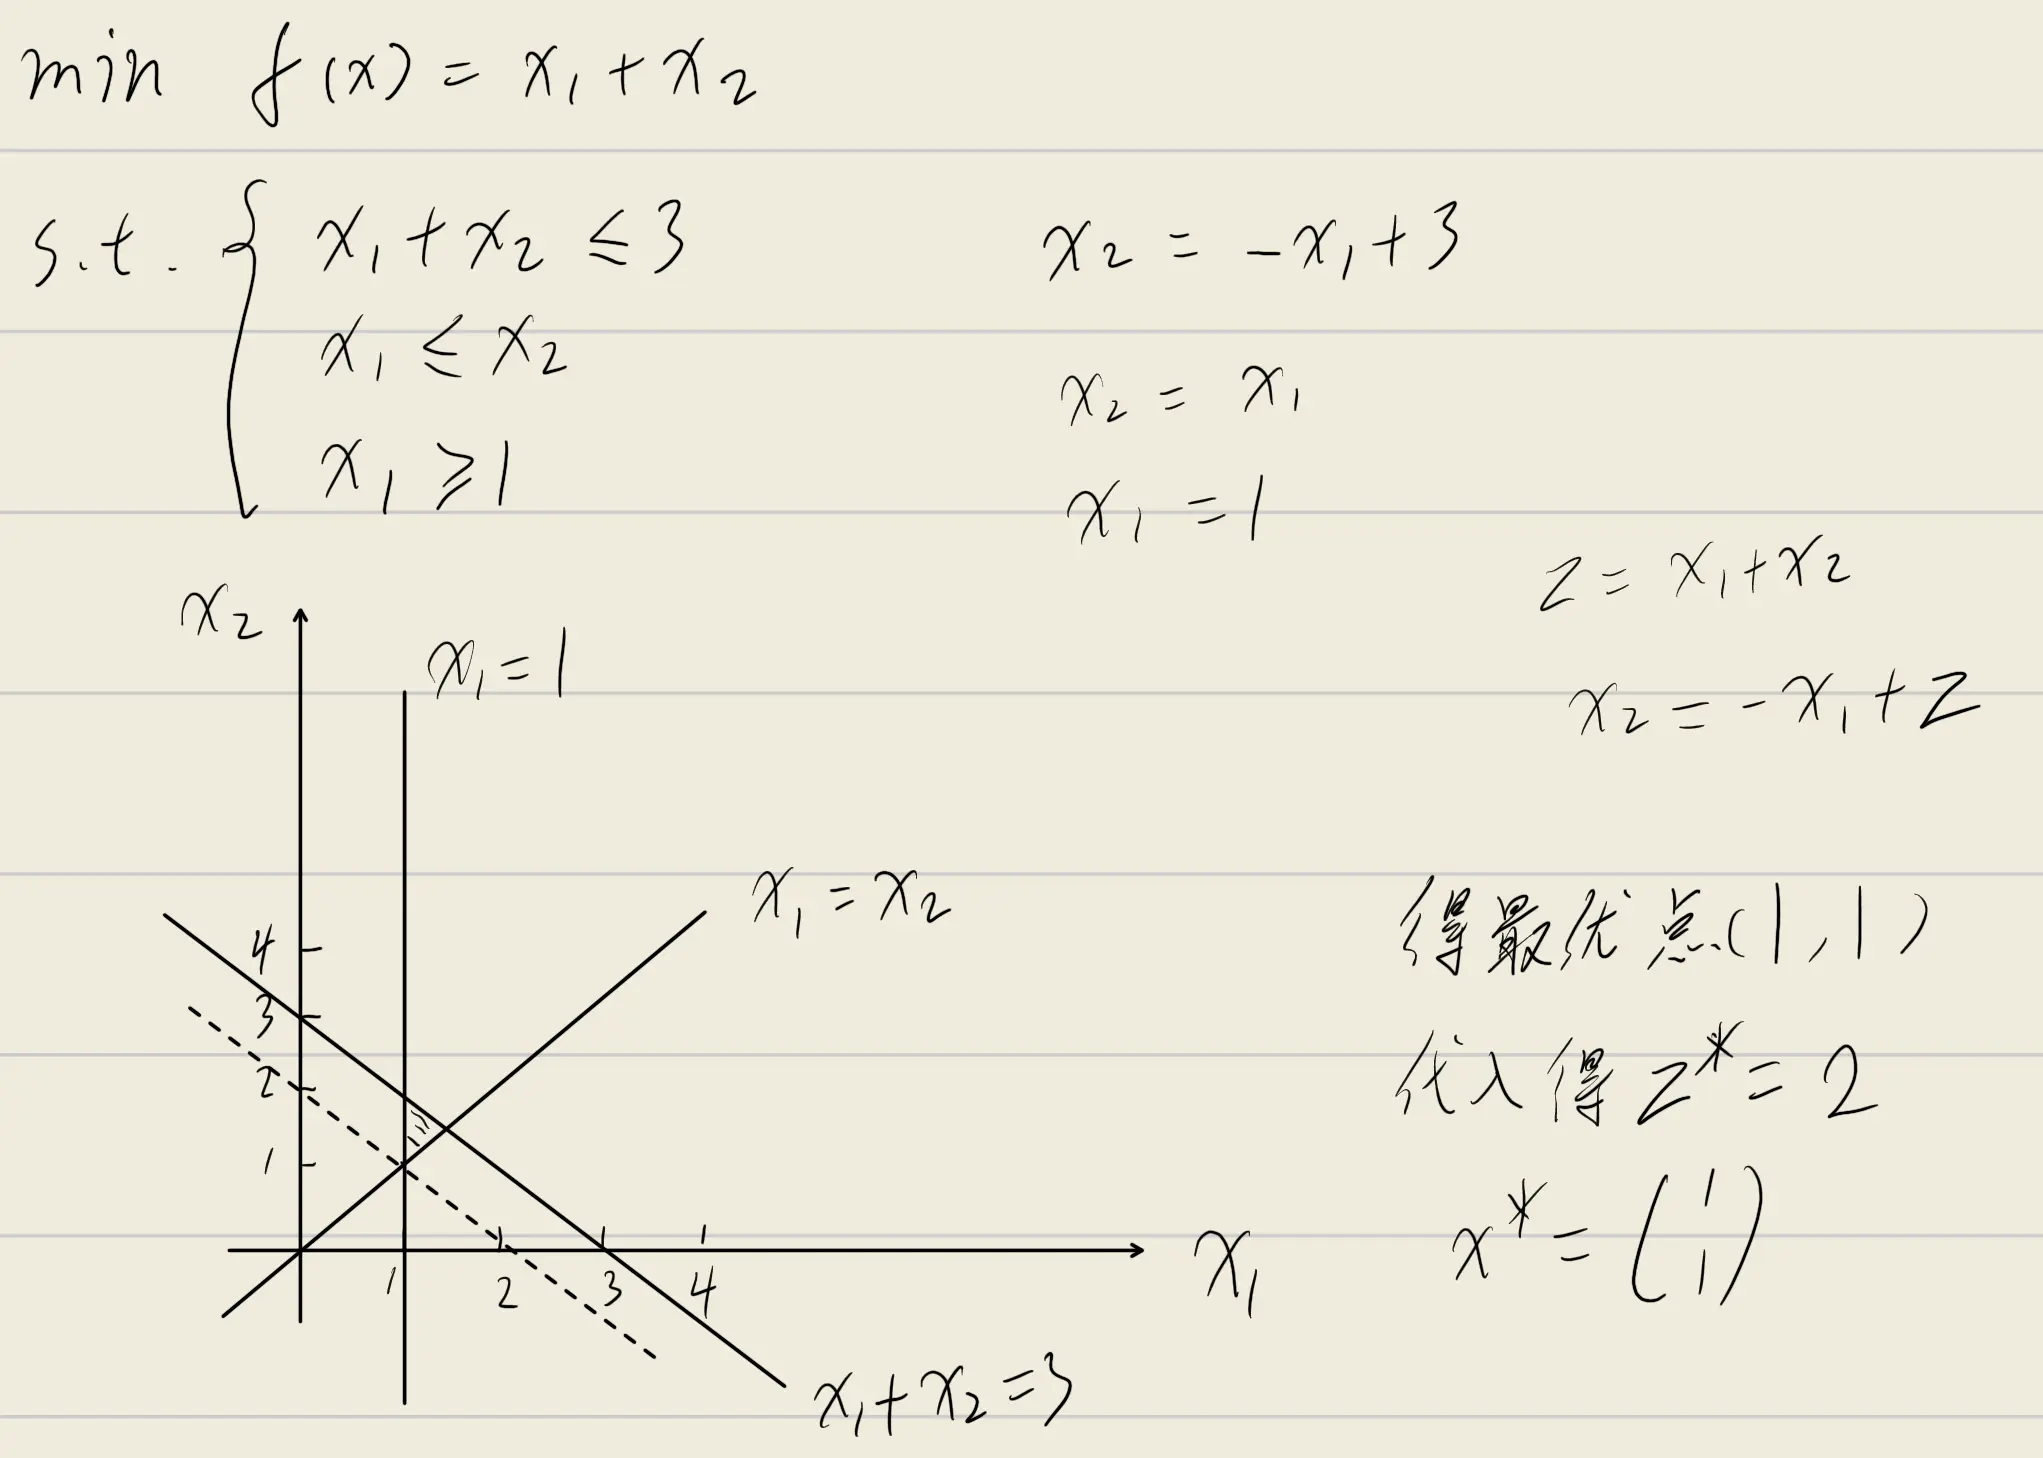 min f(x) = x₁ + x₂
s.t. { x₁ + x₂ ≤ 3
x₁ ≤ x₂
x₁ ≥ 1
x₂ = -x₁ + 3
x₂ = x₁
x₁ = 1
z = x₁ + x₂
x₂ = -x₁ + z
x₂
x₁ = 1
x₁ = x₂
4
3
2
1
1 2 3 4
x₁
x₁ + x₂ = 3
得最优点(1,1)
代入得 z* = 2
x* = (1
1)